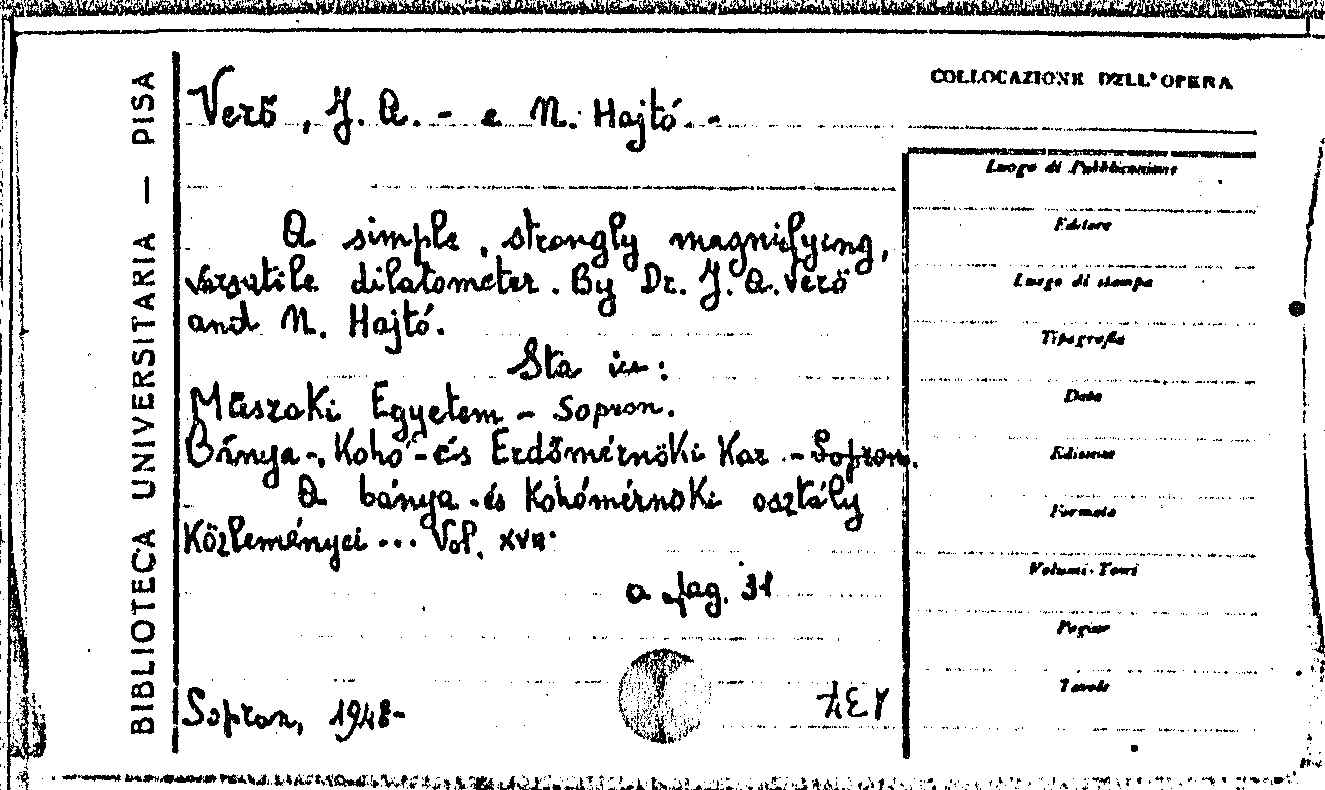 BIBLIOTECA UNIVERSITARIA — PISA
Verő, J. A. - e N. Hajtó. -
A simple, strongly magnifying,
versatile dilatometer. By Dr. J. A. Verő
and N. Hajtó.
Sta in:
Műszaki Egyetem - Sopron.
Bánya-, Kohó-és Erdőmérnöki Kar - Sopron.
A bánya-és Kohómérnöki osztály
Közleményei ... Vol. XVII.
a pag. 31
Sopron, 1948-
COLLOCAZIONE DELL'OPERA
Luogo di Pubblicazione
Editore
Luogo di stampa
Tipografia
Data
Edizione
Formato
Volumi-Tomi
Pagine
Tavole